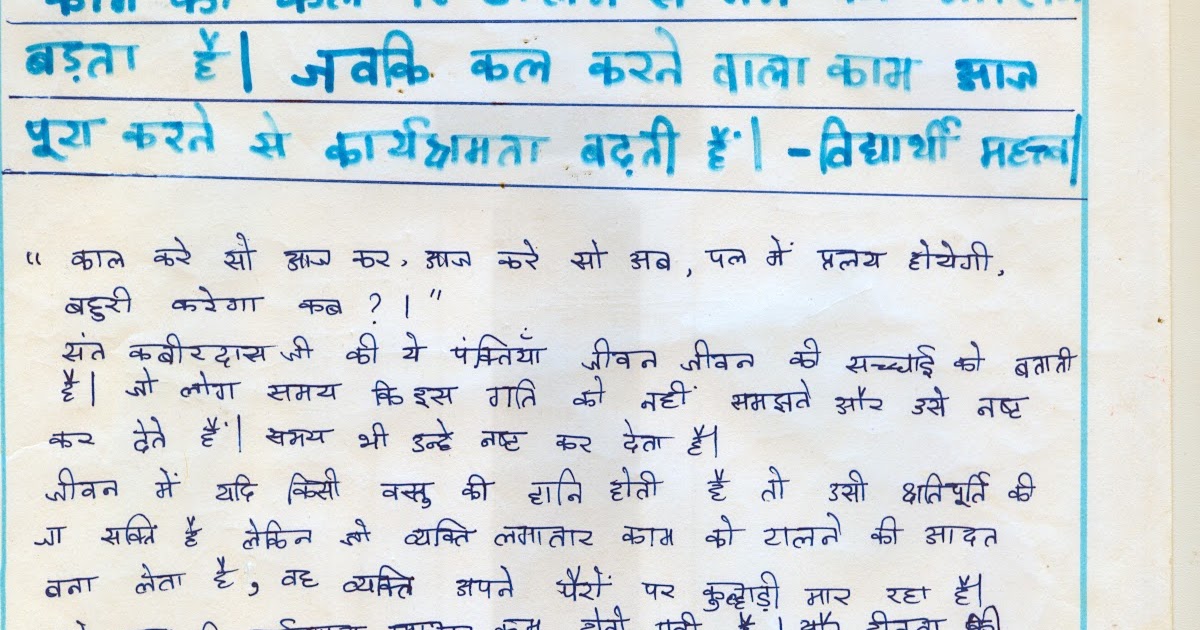 बड़ता है| जवकि कल करने वाला काम आज
पूरा करते से कार्यक्षमता बढ़ती हैं| -विद्यार्थी महत्त्व|
“ काल करे सो आज कर, आज करे सो अब, पल में प्रलय होयेगी,
बहुरी करेगा कब ?।”
संत कबीरदास जी की ये पंक्तियाँ जीवन जीवन की सच्चाई को बताती
है| जो लोग समय कि इस गति को नहीं समझते और उसे नष्ट
कर देते हैं| समय भी उन्हे नष्ट कर देता है|
जीवन में यदि किसी वस्तु की हानि होती है तो उसी क्षतिपूर्ति की
जा सक्ति है लेकिन जो व्यक्ति लगातार काम को टालने की आदत
बना लेता है, वह व्यक्ति अपने पैरों पर कुल्हाड़ी मार रहा है|